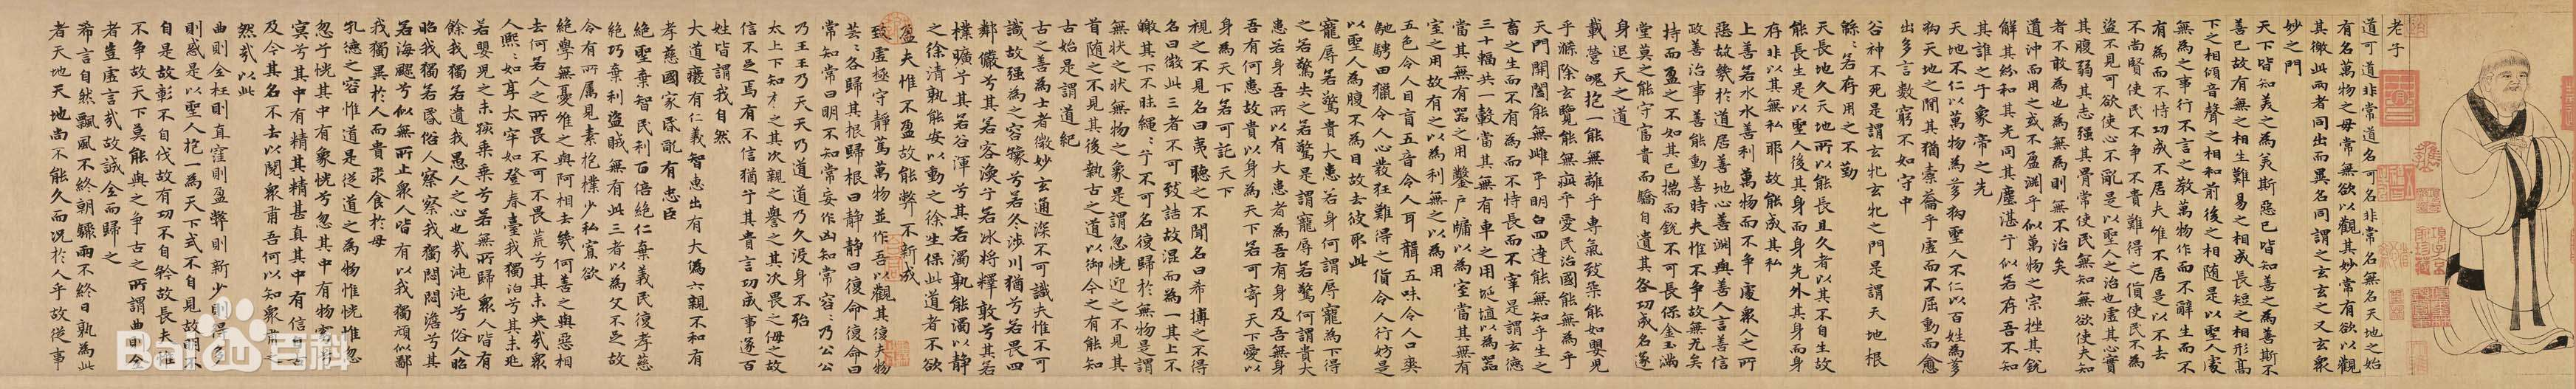 老子
道可道非常道名可名非常名無名天地之始
有名萬物之母常無欲以觀其妙常有欲以觀
其徼此兩者同出而異名同謂之玄玄之又玄衆
妙之門
天下皆知美之為美斯惡已皆知善之為善斯不
善已故有無之相生難易之相成長短之相形高
下之相傾音聲之相和前後之相随是以聖人處
無為之事行不言之教萬物作而不辭生而不
有為而不恃功成不居夫惟不居是以不去
不尚賢使民不争不貴難得之貨使民不為
盜不見可欲使心不亂是以聖人之治也虛其心實
其腹弱其志强其骨常使民無知無欲使夫知
者不敢為也為無為則無不治矣
道沖而用之或不盈淵乎似萬物之宗挫其銳
解其紛和其光同其塵湛乎似若存吾不知
其誰之子象帝之先
天地不仁以萬物為芻狗聖人不仁以百姓為芻
狗天地之間其猶橐籥乎虛而不屈動而愈
出多言數窮不如守中
谷神不死是謂玄牝玄牝之門是謂天地根
緜〻若存用之不勤
天長地久天地所以能長且久者以其不自生故
能長生是以聖人後其身而身先外其身而身
存非以其無私耶故能成其私
上善若水水善利萬物而不争處衆人之所
惡故幾於道居善地心善淵與善人言善信
政善治事善能動善時夫惟不争故無尤矣
持而盈之不如其已揣而銳不可長保金玉滿
堂莫之能守富貴而驕自遺其咎功成名遂
身退天之道
載營魄抱一能無離乎專氣致柔能如嬰兒
乎滌除玄覽能無疵乎愛民治國能無為乎
天門開闔能無雌乎明白四達能無知乎生之
畜之生而不有為而不恃長而不宰是謂玄德
三十輻共一轂當其無有車之用埏埴以為器
當其無有器之用鑿戶牖以為室當其無有
室之用故有之以為利無之以為用
五色令人目盲五音令人耳聾五味令人口爽
馳騁田獵令人心發狂難得之貨令人行妨是
以聖人為腹不為目故去彼取此
寵辱若驚貴大患若身何謂辱寵為下得
之若驚失之若驚是謂寵辱若驚何謂貴大
患若身吾所以有大患者為吾有身及吾無身
吾有何患故貴以身為天下若可寄天下愛以
身為天下若可託天下
視之不見名曰夷聽之不聞名曰希搏之不得
名曰微此三者不可致詰故混而為一其上不
皦其下不昧繩〻兮不可名復歸於無物是謂
無狀之狀無物之象是謂忽恍迎之不見其
首随之不見其後執古之道以御今之有能知
古始是謂道紀
古之善為士者微妙玄通深不可識夫惟不可
識故强為之容豫兮若冬涉川猶兮若畏四
鄰儼兮其若客渙乎若冰將釋敦兮其若
樸曠兮其若谷渾兮其若濁孰能濁以静
之徐清孰能安以動之徐生保此道者不欲
盈夫惟不盈故能弊不新成
致虛極守静篤萬物並作吾以觀其復夫物
芸〻各歸其根歸根曰静静曰復命復命曰
常知常曰明不知常妄作凶知常容〻乃公公
乃王王乃天天乃道道乃久没身不殆
太上下知有之其次親之譽之其次畏之侮之故
信不足焉有不信猶乎其貴言功成事遂百
姓皆謂我自然
大道廢有仁義智惠出有大偽六親不和有
孝慈國家昏亂有忠臣
絕聖棄智民利百倍絕仁棄義民復孝慈
絕巧棄利盜賊無有此三者以為文不足故
令有所屬見素抱樸少私寡欲
絕學無憂唯之與阿相去幾何善之與惡相
去何若人之所畏不可不畏荒兮其未央哉衆
人熙〻如享太牢如登春臺我獨泊兮其未兆
若嬰兒之未孩乘乘兮若無所歸衆人皆有
餘我獨若遺我愚人之心也哉沌沌兮俗人昭
昭我獨若昏俗人察察我獨悶悶澹兮其
若海飂兮似無所止衆人皆有以我獨頑似鄙
我獨異於人而貴求食於母
孔德之容惟道是從道之為物惟恍惟忽
忽兮恍其中有象恍兮忽其中有物窈兮
冥兮其中有精其精甚真其中有信自古
及今其名不去以閱衆甫吾何以知衆甫之
然哉以此
曲則全枉則直窪則盈弊則新少則得多
則惑是以聖人抱一為天下式不自見故明不
自是故彰不自伐故有功不自矜故長夫惟
不争故天下莫能與之争古之所謂曲則全
者豈虛言哉故誠全而歸之
希言自然飄風不終朝驟雨不終日孰為此
者天地天地尚不能久而况於人乎故從事
Baidu百科